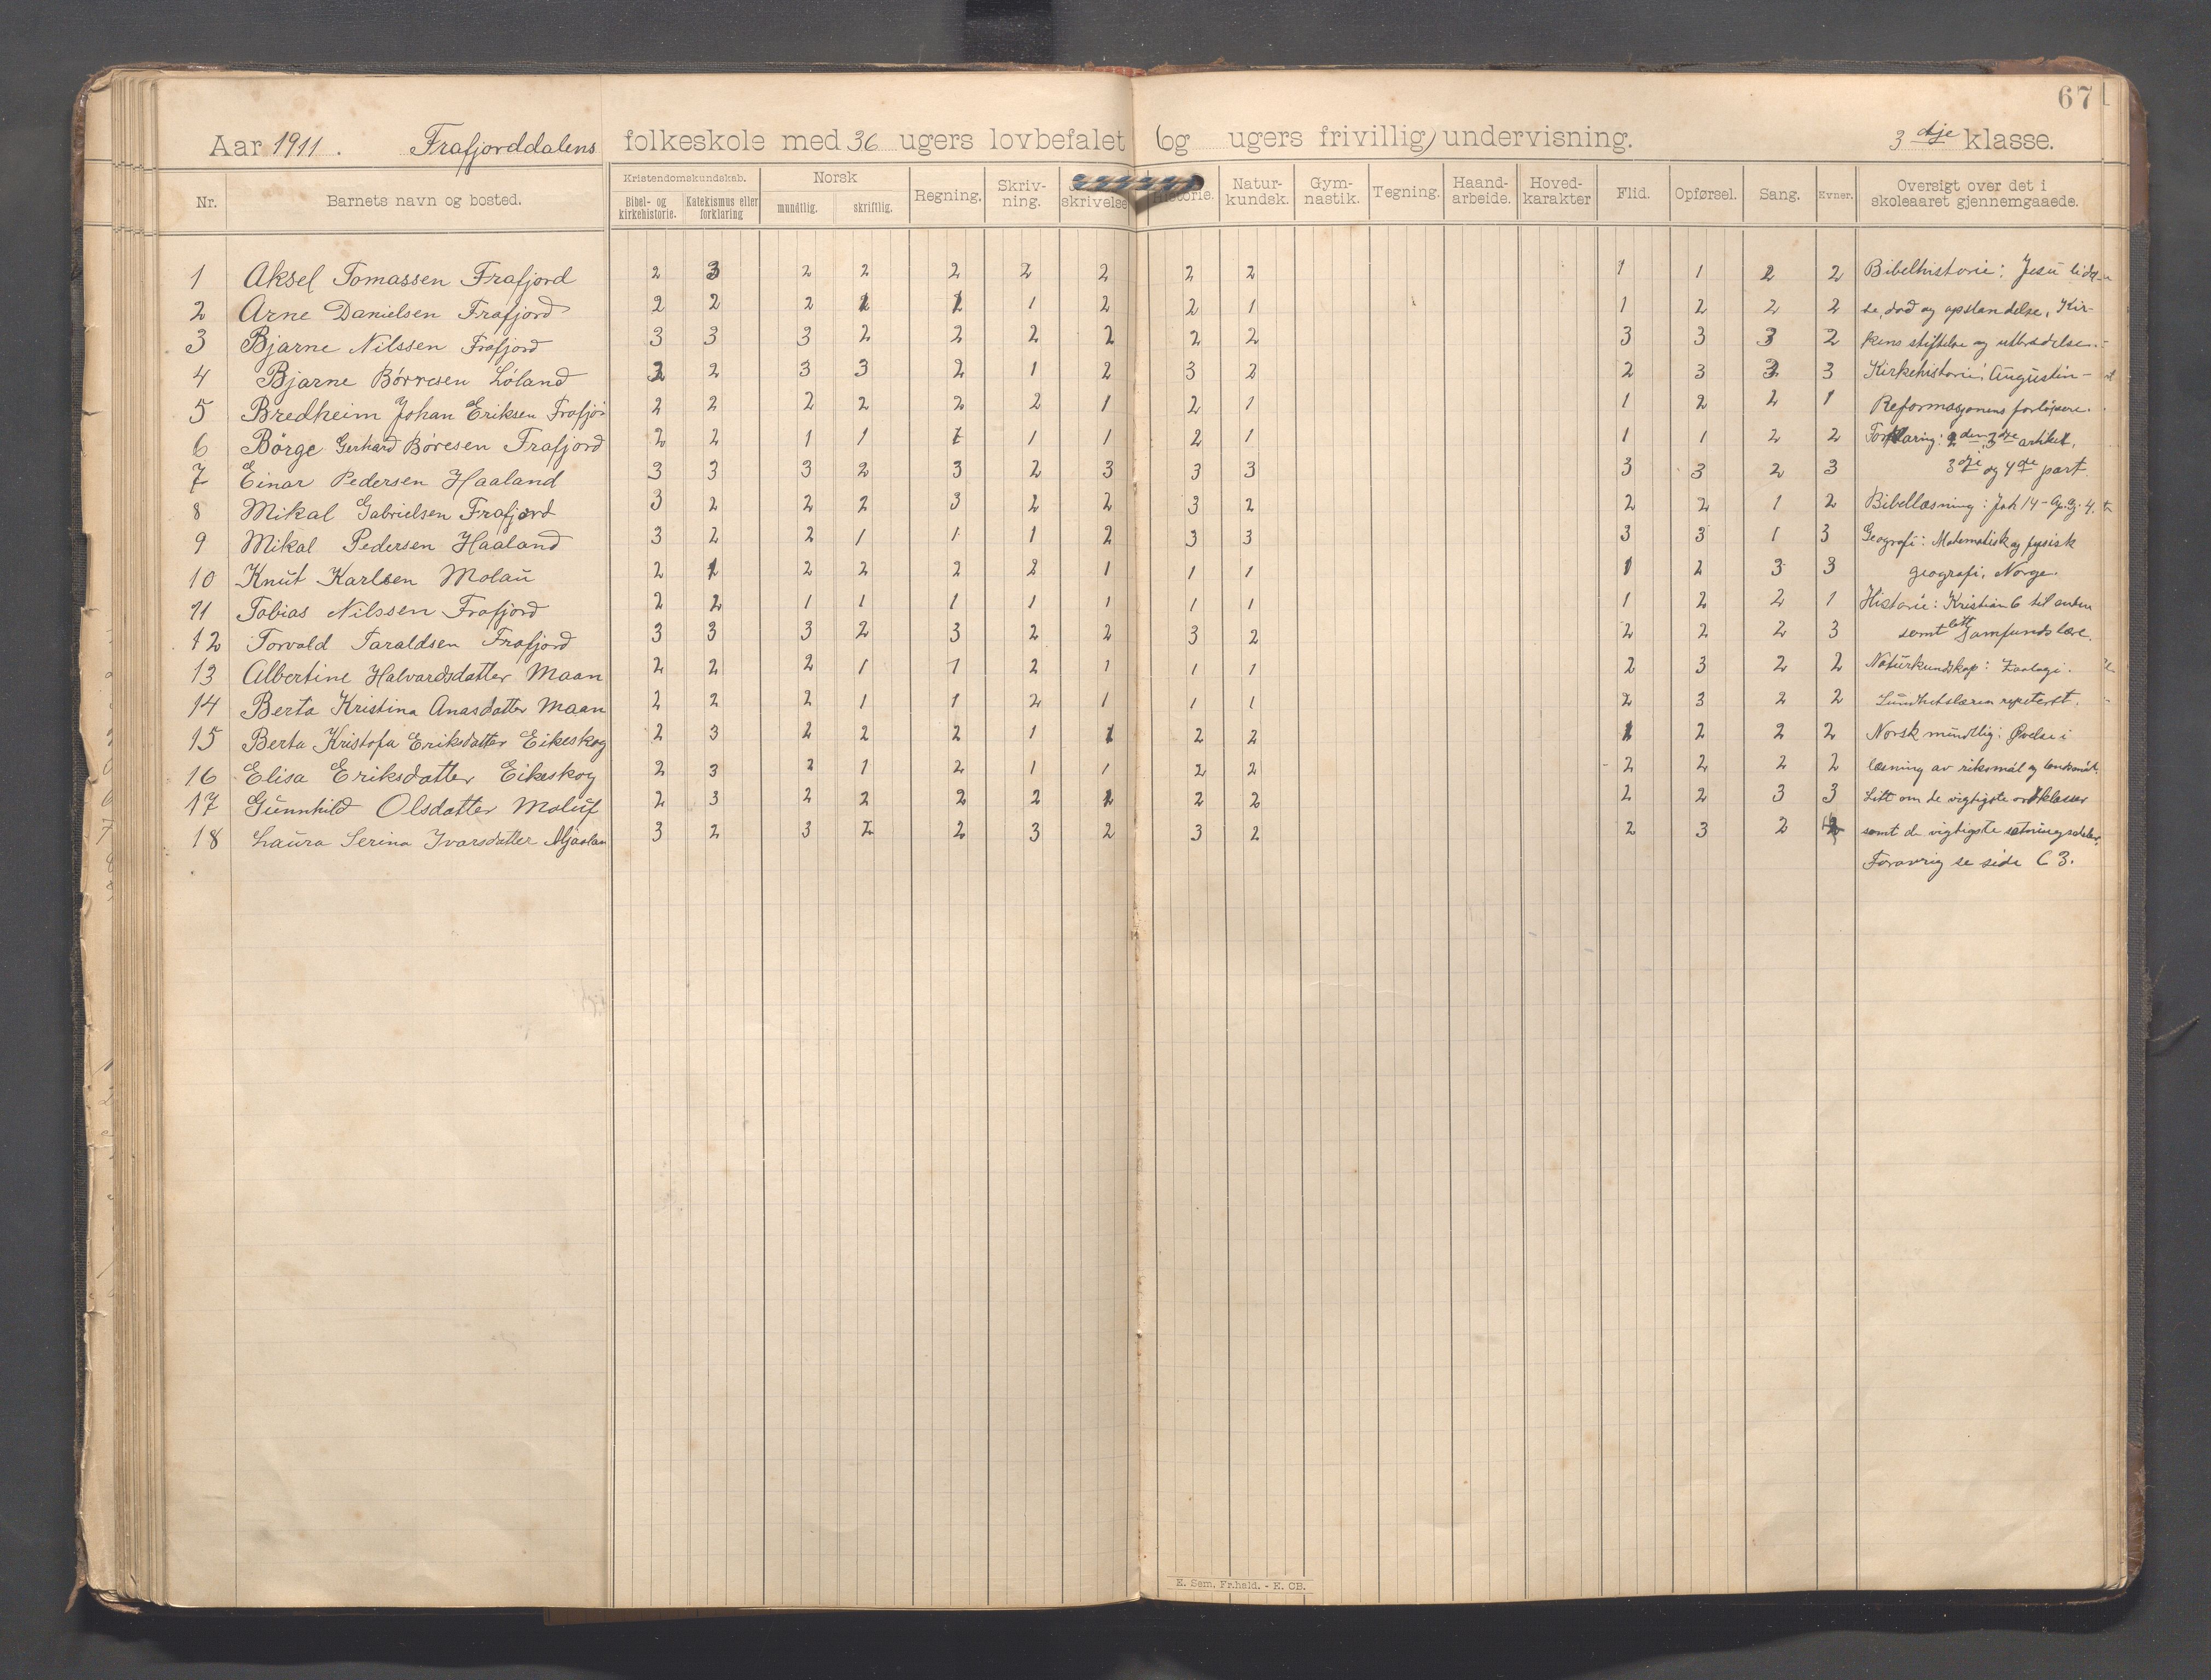 67
Aar 1911. Frafjorddalens folkeskole med 36 ugers lovbefalet (og ugers frivillig) undervisning. 3dje klasse.
Nr. Barnets navn og bosted. Kristendomskundskab. Bibel- og kirkehistorie. Katekismus eller forklaring Norsk mundtlig. skriftlig. Regning. Skriv-ning. skrivelse Historie. Natur-kundsk. Gym-nastik. Tegning. Haand-arbeide. Hoved-karakter Flid. Opførsel. Sang. Evner. Oversigt over det i skoleaaret gjennemgaaede.
1 Aksel Tomassen Frafjord 2 3 2 2 2 2 2 2 2 1 1 2 2 Bibelhistorie: Jesu lidel-
2 Arne Danielsen Frafjord 2 2 2 1 1 1 2 2 1 1 2 2 2 se, død og opstandelse, Kir-
3 Bjarne Nilssen Frafjord 3 3 3 2 2 2 2 2 2 3 3 3 2 kens stiftelse og utbredelse.
4 Bjarne Børresen Löland 3 2 3 3 2 1 2 3 2 2 3 3 3 Kirkehistorie: Augustin-
5 Bredheim Johan Eriksen Frafjo 2 2 2 2 2 2 1 2 1 1 2 2 1 Reformasjonens forløpere.
6 Börge Gerhard Børesen Frafjord 2 2 1 1 1 1 1 2 1 1 1 2 2 Forklaring: 2den, 3dje artikel,
7 Einar Pedersen Haaland 3 3 3 2 3 2 3 3 3 3 3 2 3 3dje og 4de part.
8 Mikal Gabrielsen Frafjord 3 2 2 2 3 2 2 3 2 2 2 1 2 Bibellæsning: Joh 14-Ap.gj. 4.
9 Mikal Pedersen Haaland 3 2 2 1 1 1 2 3 3 3 3 1 3 Geografi: Matematisk og fysisk
10 Knut Karlsen Molau 2 1 2 2 2 2 1 1 1 1 2 3 3 geografi, Norge.
11 Tobias Nilssen Frafjord 2 2 1 1 1 1 1 1 1 1 2 2 1 Historie: Kristian 6 til enden
12 Torvald Taraldsen Frafjord 3 3 3 2 3 2 2 3 2 2 2 2 3 samt litt Samfundslære.
13 Albertine Halvardsdatter Maan 2 2 2 1 1 2 1 1 1 2 3 2 2 Naturkundskap: Zoologi.
14 Berta Kristina Anasdatter Maan 2 2 2 1 1 2 1 1 1 2 3 2 2 Sundhetslæren repetert.
15 Berta Kristofa Eriksdatter Eikeskog 2 3 2 2 2 1 1 2 2 1 2 2 2 Norsk mundtlig: Øvelse i
16 Elisa Eriksdatter Eikeskog 2 3 2 1 2 1 1 2 2 2 2 2 2 læsning av riksmål og landsmål.
17 Gunnhild Olsdatter Moluf 2 3 2 2 2 2 2 2 2 2 2 3 3 Litt om de vigtigste ordklasser
18 Laura Serina Ivarsdatter Mjaalan 3 2 3 2 2 3 2 3 2 2 3 2 samt de vigtigste sætningsdeler.
Forøvrig se side 63.
E. Sem. Fr.hald. - E. OB.